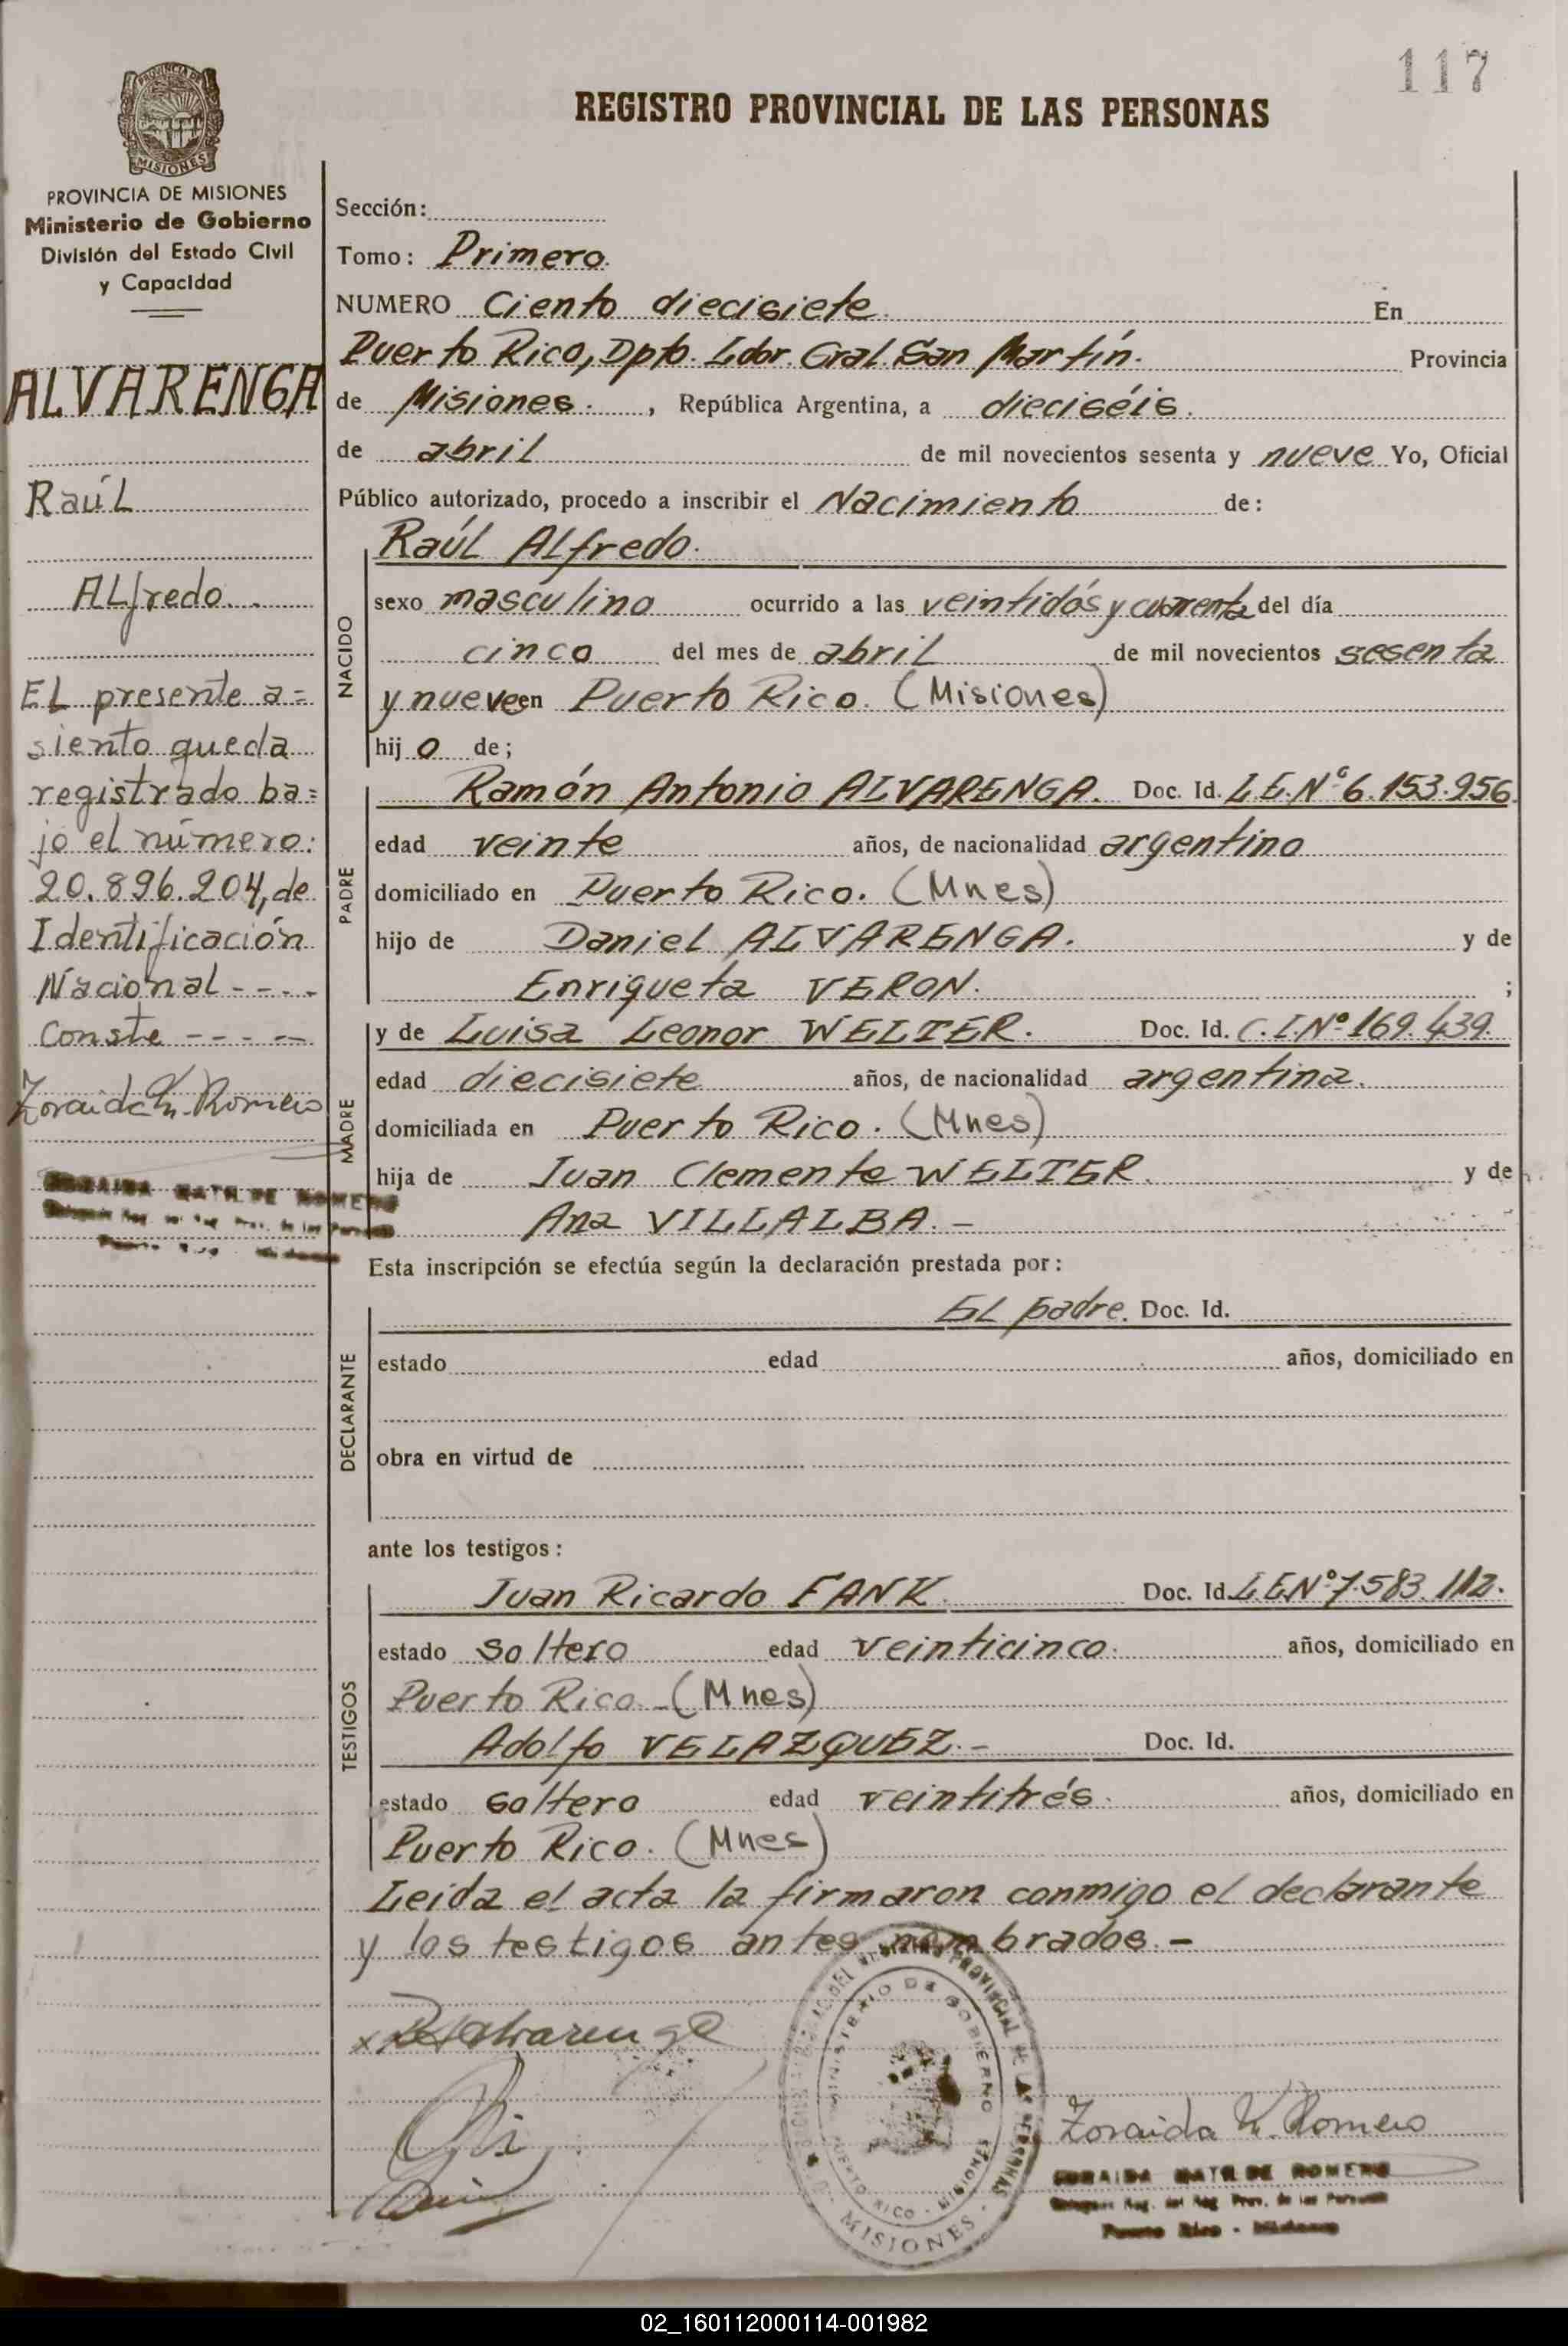 117
REGISTRO PROVINCIAL DE LAS PERSONAS
PROVINCIA DE
MISIONES
PROVINCIA DE MISIONES
Ministerio de Gobierno
División del Estado Civil
y Capacidad
ALVARENGA
Raúl
ALfredo
EL presente a=
siento queda
registrado ba=
jo el número:
20.896.204, de
Identificación
Nacional - - - -
Conste - - - - -
Zoraida M. Romero
ZORAIDA DE ROMERO
Puerto Rico - Misiones
Sección:
Tomo: Primero.
NUMERO Ciento diecisiete. En
Puerto Rico, Dpto. Ldor. Gral. San Martín. Provincia
de Misiones. , República Argentina, a dieciséis.
de abril de mil novecientos sesenta y nueve Yo, Oficial
Público autorizado, procedo a inscribir el Nacimiento de:
NACIDO
Raúl Alfredo.
sexo masculino ocurrido a las veintidós y cuarenta del día
cinco del mes de abril de mil novecientos sesenta
y nueve en Puerto Rico. (Misiones)
hij o de;
PADRE
Ramón Antonio ALVARENGA. Doc. Id. L.E.Nº 6.153.956.
edad veinte años, de nacionalidad argentino
domiciliado en Puerto Rico. (Mnes)
hijo de Daniel ALVARENGA. y de
Enriqueta VERON. ;
MADRE
y de Luisa Leonor WELTER. Doc. Id. C.I.Nº 169.439.
edad diecisiete años, de nacionalidad argentina.
domiciliada en Puerto Rico. (Mnes)
hija de Juan Clemente WELTER. y de
Ana VILLALBA. -
Esta inscripción se efectúa según la declaración prestada por:
DECLARANTE
EL padre. Doc. Id.
estado edad años, domiciliado en
obra en virtud de
ante los testigos:
TESTIGOS
Juan Ricardo FANK. Doc. Id. L.E.Nº 7.583.112.
estado soltero edad veinticinco. años, domiciliado en
Puerto Rico. - (Mnes)
Adolfo VELAZQUEZ. - Doc. Id.
estado soltero edad veintitrés. años, domiciliado en
Puerto Rico. (Mnes)
Leída el acta la firmaron conmigo el declarante
y los testigos antes nombrados. -
x RAlvarenga
DEL REGISTRO PROVINCIAL DE LAS PERSONAS
MINISTERIO DE GOBIERNO
PUERTO RICO - MISIONES
- MISIONES -
Zoraida M. Romero
ZORAIDA DE ROMERO
Reg. del Reg. Prov. de las Personas
Puerto Rico - Misiones
02_160112000114-001982